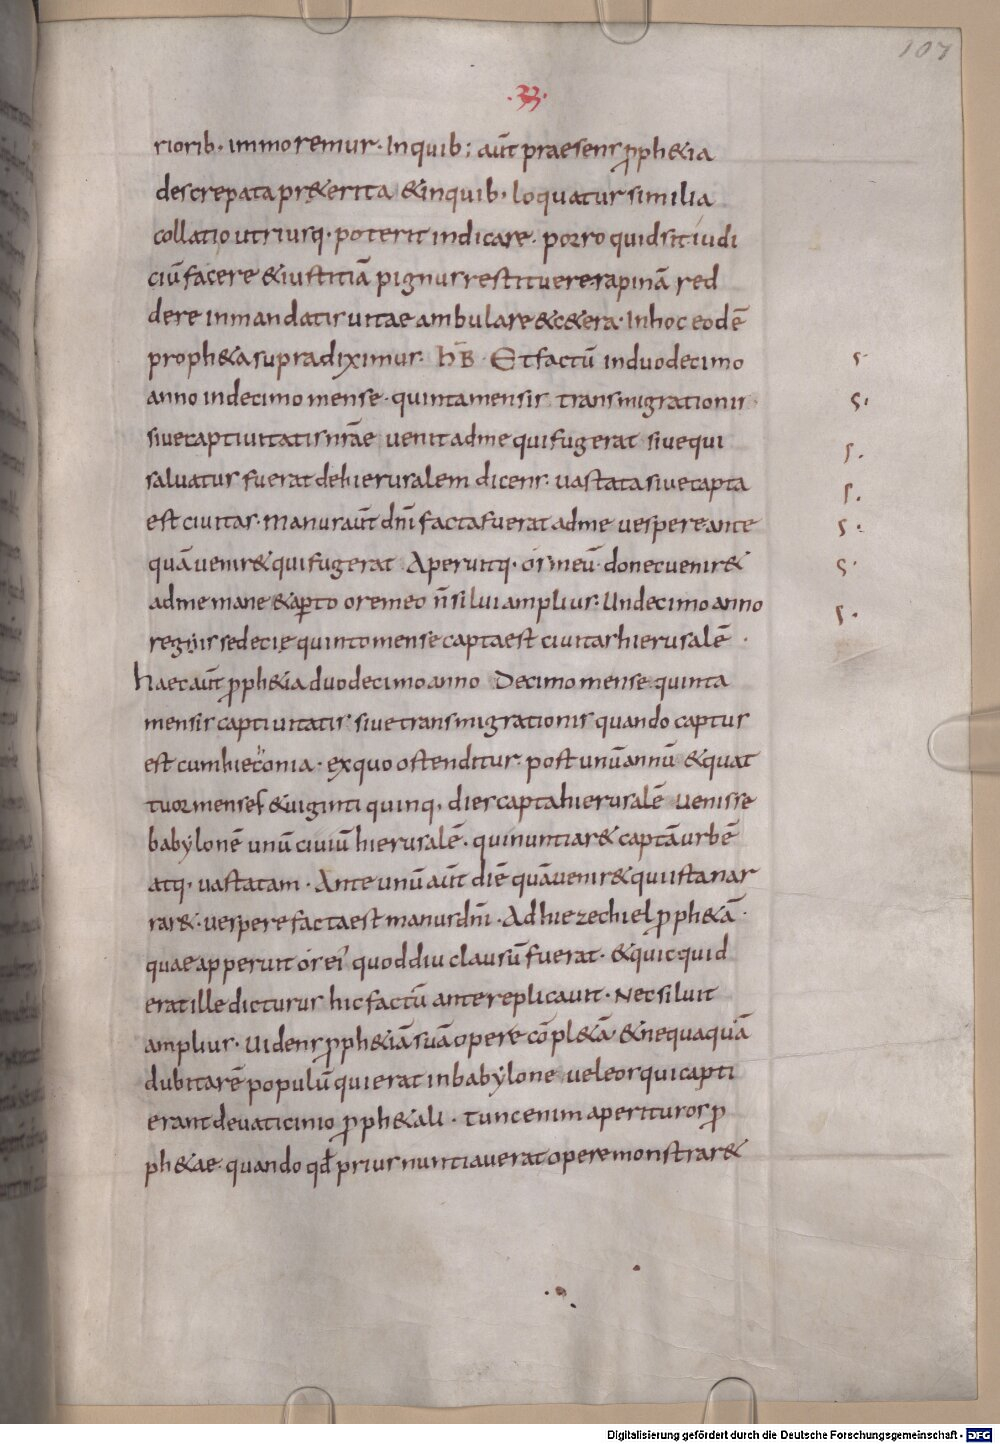 107
·33·
riorib· immoremur· Inquib; aūt praesens ꝓph&ia
descrepata pr&erita &inquib· loquatur similia
collatio utriusq· poterit indicare· porro quid sit iudi
ciū facere &iustitiā pignus restituere rapinā red
dere in mandatis uitae ambulare &c&era· In hoc eodē
proph&a supra diximus· hB̄· Et factū in duodecimo
anno in decimo mense· quinta mensis transmigrationis·
siue captiuitatis nrāe uenit ad me qui fugerat siue qui
saluatus fuerat de hierusalem dicens· uastata siue capta
est ciuitas· Manus aūt dn̄i facta fuerat ad me uespere ante
quā uenir& qui fugerat Aperuitq· os meū· donec uenir&
ad me mane &aꝑto ore meo n̄ silui amplius· Undecimo anno
regnis sedecie quinto mense capta est ciuitas hierusalē ·
haec aūt ꝓph&ia duodecimo anno Decimo mense quinta
mensis captiuitatis siue transmigrationis quando captus
est cum hieconia· ex quo ostenditur· post unū annū &quat
tuor menses &uiginti quinq· dies capta hierusalē uenisse
babylonē unū ciuiū hierusalē· qui nuntiar& captā urbē
atq· uastatam· Ante unū aūt diē quā uenir& qui ista nar
rar&· uespere facta est manus dn̄i· Ad hiezechiel ꝓph&ā·
quae apperuit os ei quod diu clausū fuerat· &quicquid
erat ille dicturus hic factū ante replicauit· Nec siluit
amplius· Uidens ꝓph&iā suā opere cōpl&ā &nequaquā
dubitarē populū qui erat in babylone uel eos qui capti
erant de uaticinio ꝓph&ali· tunc enim aperitur os ꝓ
ph&ae· quando qđ prius nuntiauerat opere monstrar&
s·
s·
s·
s·
s·
s·
s·
Digitalisierung gefördert durch die Deutsche Forschungsgemeinschaft - DFG